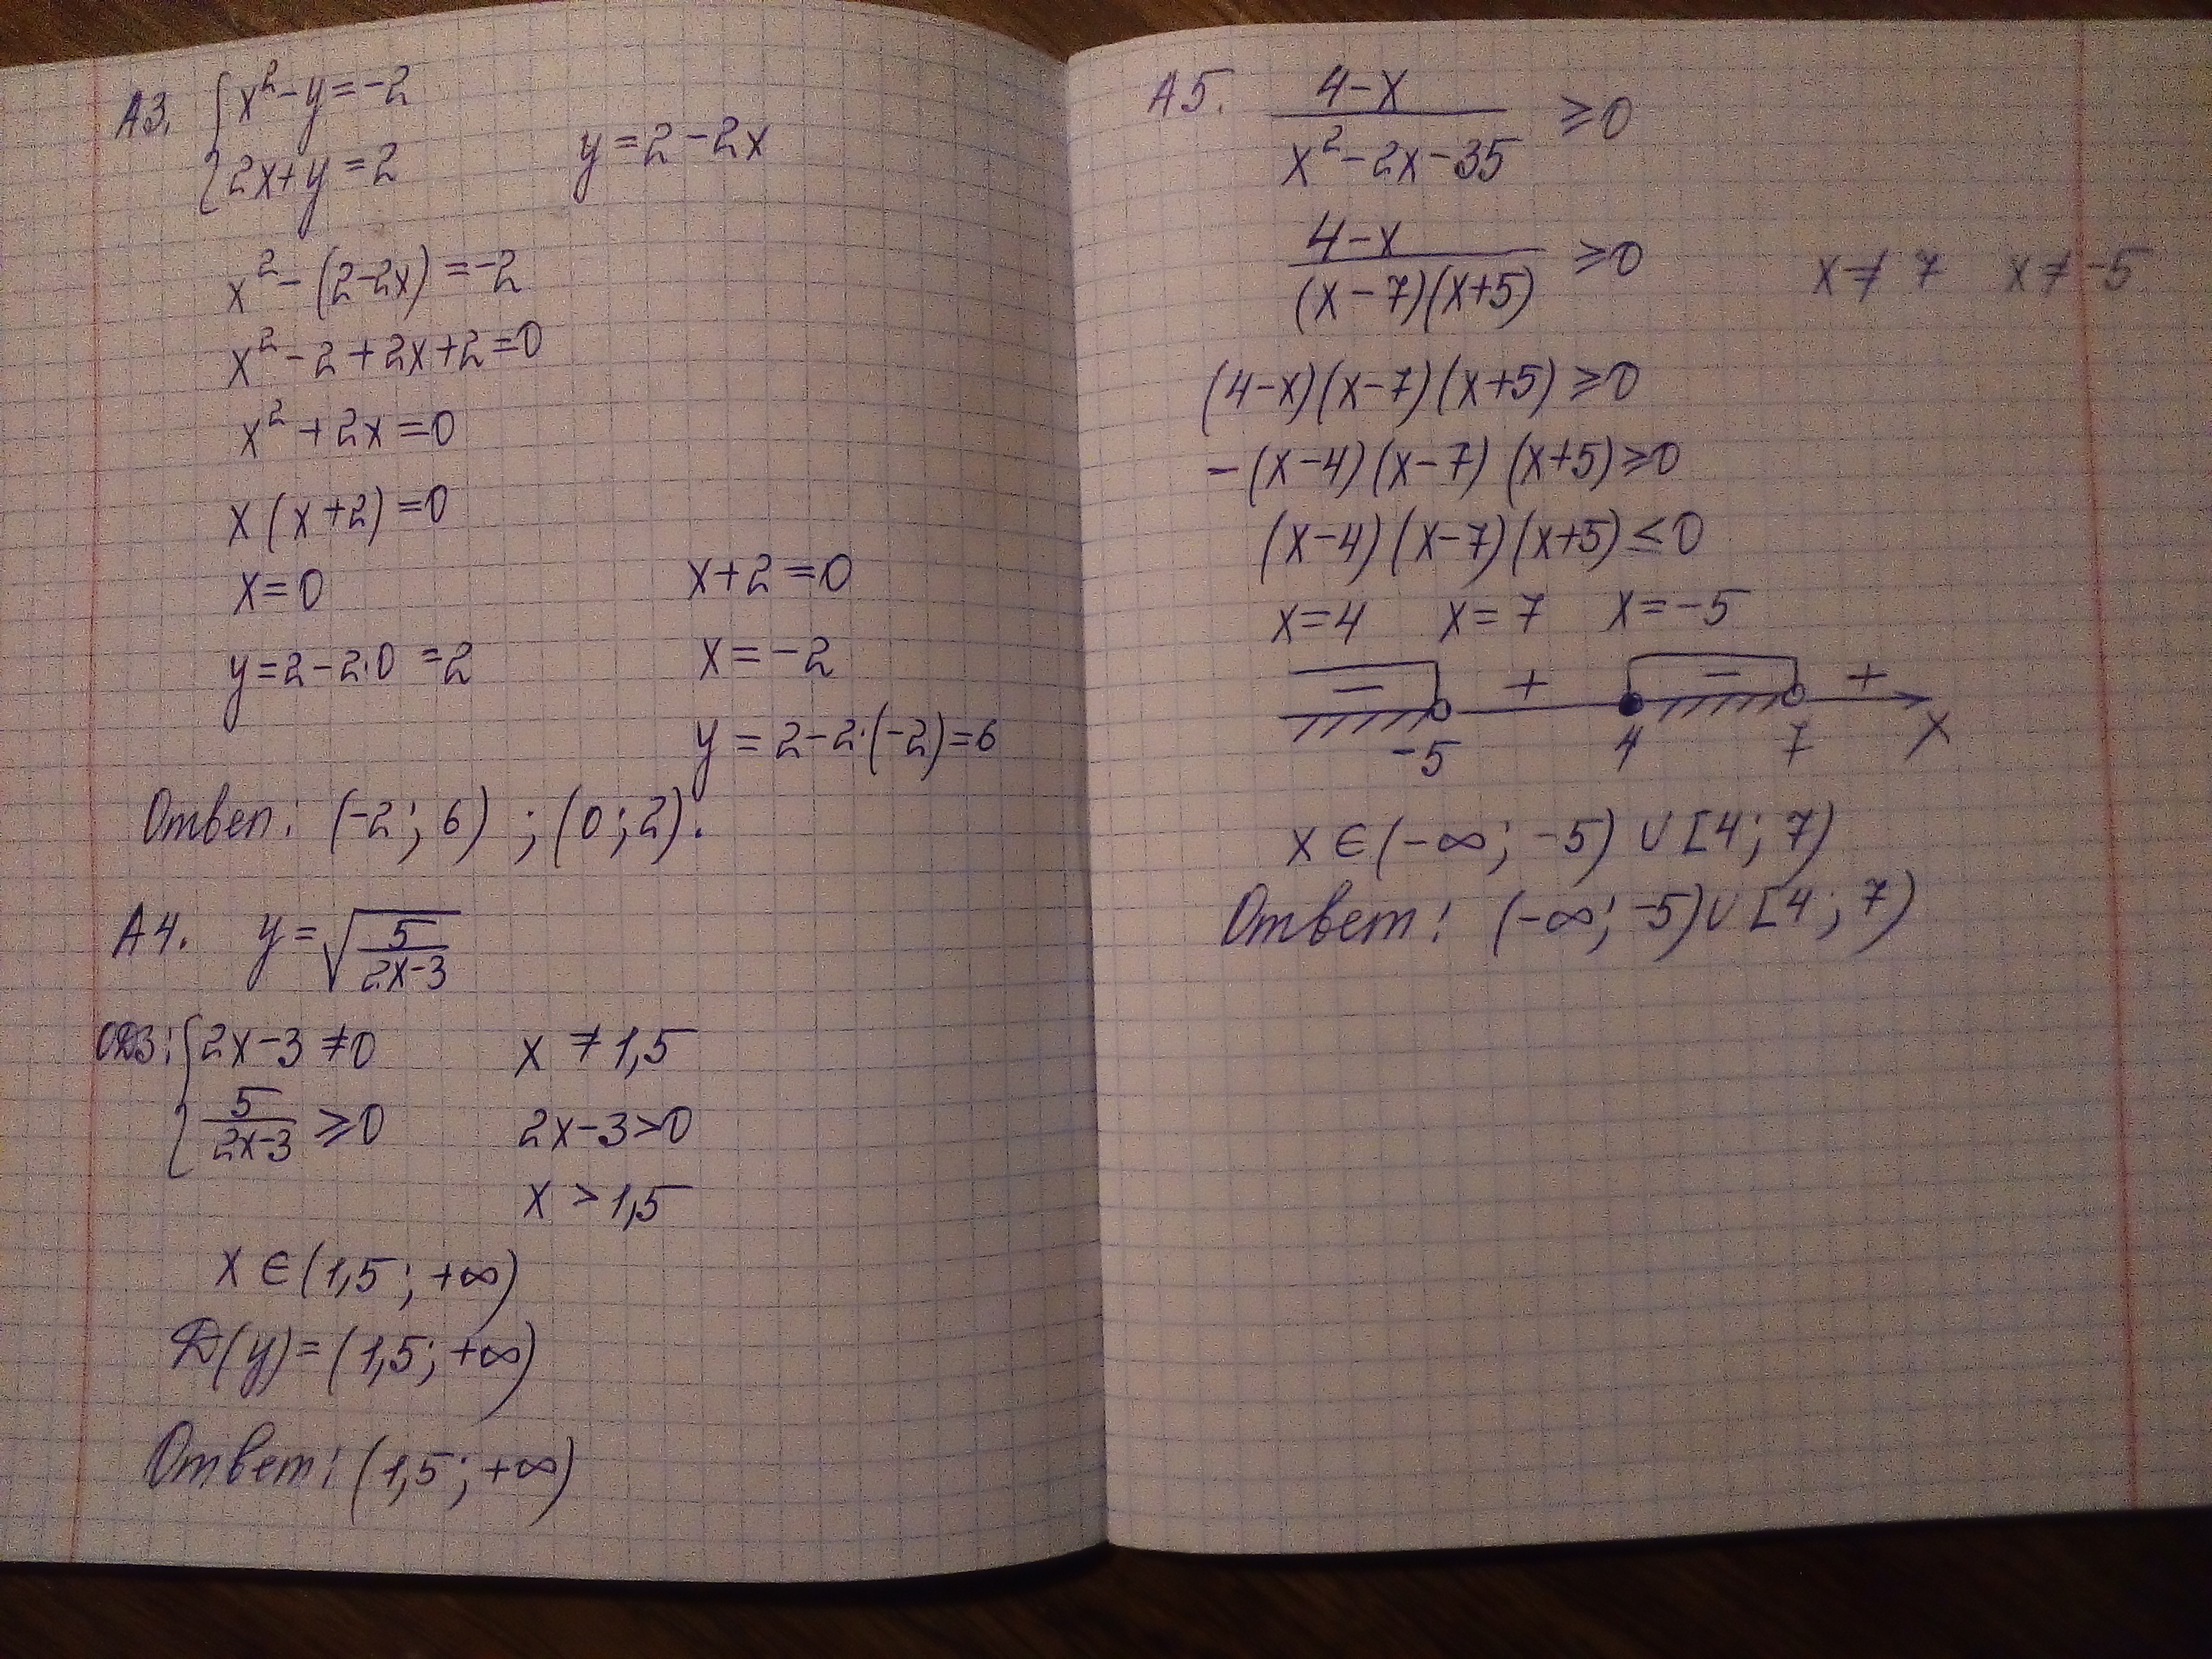 А3. { x² - y = -2
2x + y = 2 y = 2 - 2x
x² - (2 - 2x) = -2
x² - 2 + 2x + 2 = 0
x² + 2x = 0
x(x + 2) = 0
x = 0 x + 2 = 0
y = 2 - 2·0 = 2 x = -2
y = 2 - 2·(-2) = 6
Ответ: (-2; 6) ; (0; 2).
А4. y = √(5/(2x-3))
ОДЗ: { 2x - 3 ≠ 0 x ≠ 1,5
5/(2x-3) ⩾ 0 2x - 3 > 0
x > 1,5
x ∈ (1,5; +∞)
D(y) = (1,5; +∞)
Ответ: (1,5; +∞)
А5. (4-x)/(x²-2x-35) ⩾ 0
(4-x)/((x-7)(x+5)) ⩾ 0 x ≠ 7 x ≠ -5
(4-x)(x-7)(x+5) ⩾ 0
-(x-4)(x-7)(x+5) ⩾ 0
(x-4)(x-7)(x+5) ≤ 0
x = 4 x = 7 x = -5
- + - +
-5 4 7 x
x ∈ (-∞; -5) ∪ [4; 7)
Ответ: (-∞; -5) ∪ [4; 7)